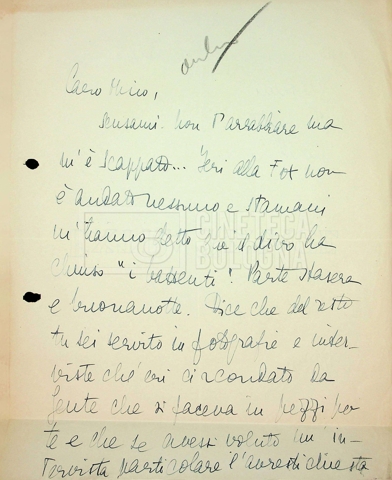 Caro Mino,
scusami. non t'arrabbiare ma
m'è scappato... Ieri alla Fox non
è andato nessuno e stamani
m'hanno detto che il divo ha
chiuso "i battenti". Parte stasera
e buonanotte. Dice che del resto
tu sei servito in fotografie e inter-
viste che eri circondato da
gente che si faceva in pezzi per
te e che se avessi voluto un'in-
tervista particolare l'avresti chiesta
CINETECA
BOLOGNA